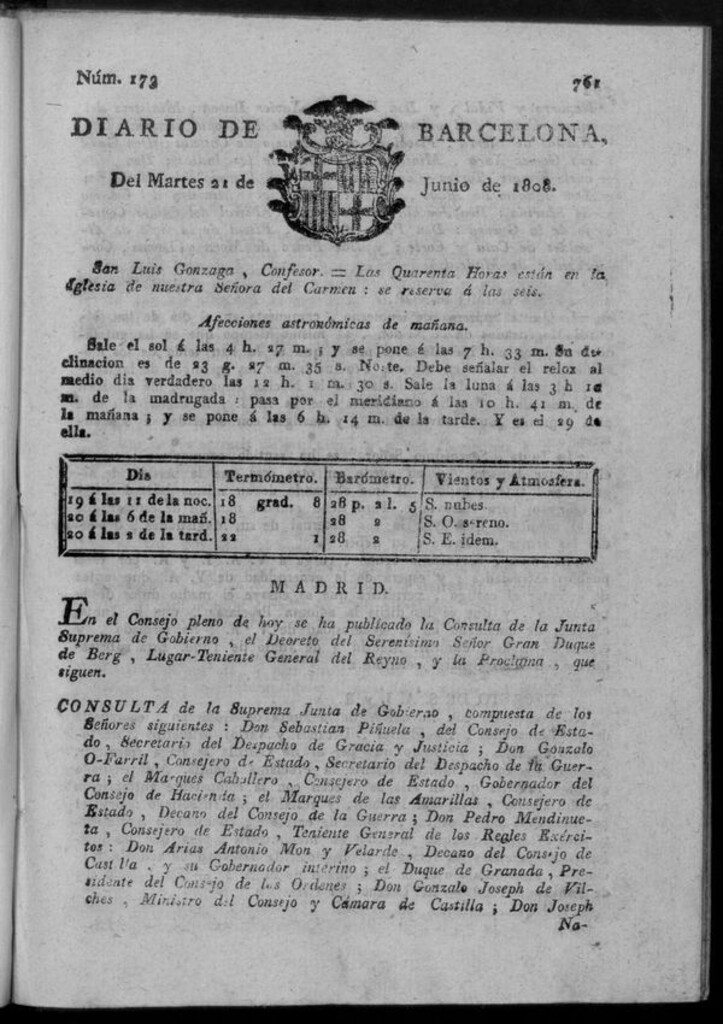 Núm. 173 761
DIARIO DE BARCELONA,
Del Martes 21 de Junio de 1808.
San Luis Gonzaga , Confesor. = Las Quarenta Horas están en la
Iglesia de nuestra Señora del Carmen : se reserva á las seis.
Afecciones astronómicas de mañana.
Sale el sol á las 4 h. 27 m. ; y se pone á las 7 h. 33 m. Su de-
clinacion es de 23 g. 27 m. 35 s. Norte. Debe señalar el relox al
medio dia verdadero las 12 h. 1 m. 30 s. Sale la luna á las 3 h 10
m. de la madrugada : pasa por el meridiano á las 10 h. 41 m. de
la mañana ; y se pone á las 6 h. 14 m. de la tarde. Y es el 29 de
ella.
Dia Termómetro. Barómetro. Vientos y Atmosfera.
19 á las 11 de la noc. 18 grad. 8 28 p. 2 l. 5 S. nubes.
20 á las 6 de la mañ. 18 28 2 S. O. sereno.
20 á las 2 de la tard. 22 1 28 2 S. E. idem.
MADRID.
En el Consejo pleno de hoy se ha publicado la Consulta de la Junta
Suprema de Gobierno , el Decreto del Serenísimo Señor Gran Duque
de Berg , Lugar-Teniente General del Reyno , y la Proclama , que
siguen.
CONSULTA de la Suprema Junta de Gobierno , compuesta de los
Señores siguientes : Don Sebastian Piñuela , del Consejo de Esta-
do , Secretario del Despacho de Gracia y Justicia ; Don Gonzalo
O-Farril , Consejero de Estado , Secretario del Despacho de la Guer-
ra ; el Marques Caballero , Consejero de Estado , Gobernador del
Consejo de Hacienda ; el Marques de las Amarillas , Consejero de
Estado , Decano del Consejo de la Guerra ; Don Pedro Mendinue-
ta , Consejero de Estado , Teniente General de los Reales Exérci-
tos : Don Arias Antonio Mon y Velarde , Decano del Consejo de
Castilla , y su Gobernador interino ; el Duque de Granada , Pre-
sidente del Consejo de los Ordenes ; Don Gonzalo Joseph de Vil-
ches , Ministro del Consejo y Cámara de Castilla ; Don Joseph
Na-